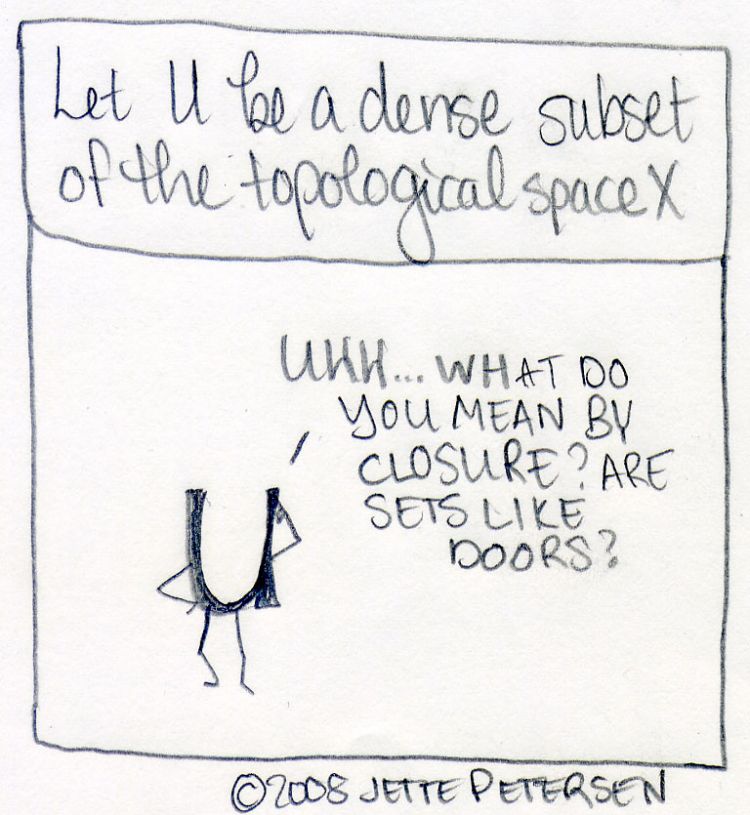 Let U be a dense subset
of the topological space X
UHH... WHAT DO
YOU MEAN BY
CLOSURE? ARE
SETS LIKE
DOORS?
©2008 JETTE PETERSEN